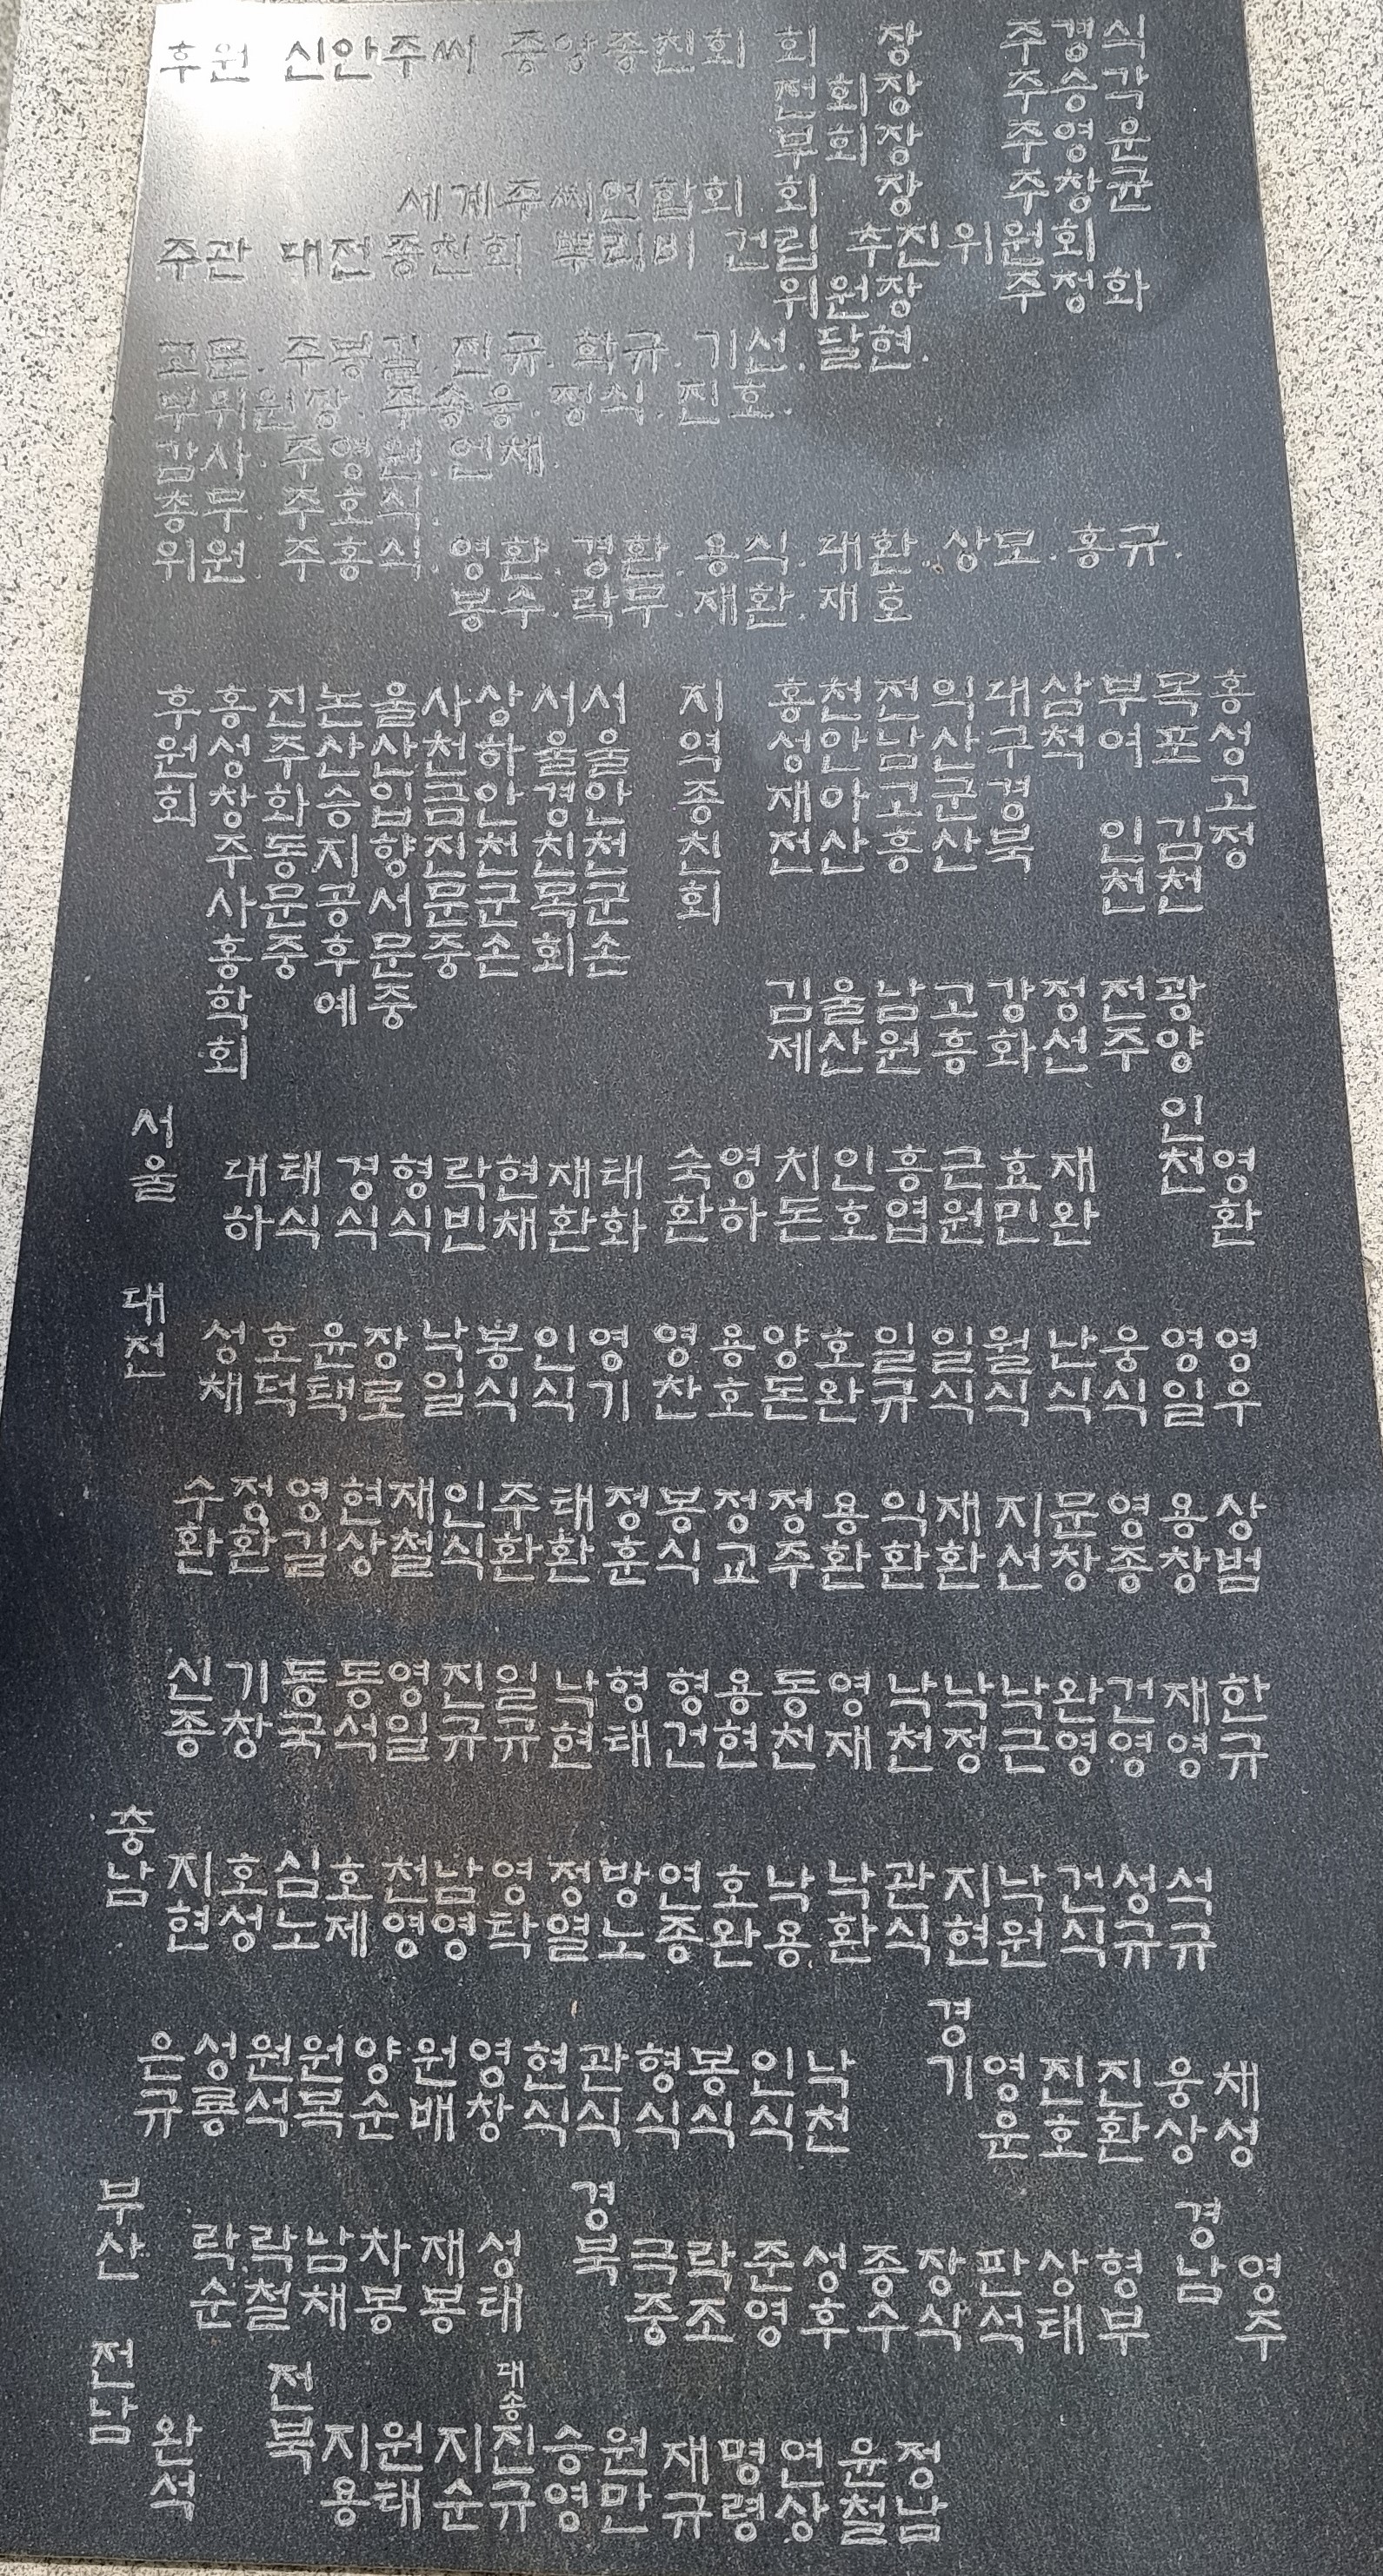 후원 신안주씨 중앙종친회 회 장 주경식
전회장 주승각
부회장 주영운
세계주씨연합회 회 장 주창균
주관 대전종친회 뿌리비 건립 추진위원회
위원장 주정화
고문. 주봉길. 진규. 학규. 기선. 달현.
부위원장. 주송웅. 정식. 진호.
감사. 주영원. 언채.
총무. 주호식.
위원. 주홍식. 영환. 경환. 용식. 대환. 상모. 홍규.
봉수. 락무. 재환. 재호
후원회
홍성창주사홍학회
진주화동문중
논산승지공후예
울산입향서문중
사천금진문중
상하안천군손
서울경친목회
서울안천군손
지역종친회
홍성재전 김제
천안아산 울산
전남고흥 남원
익산군산 고흥
대구경북 강화
삼척 정선
부여 인천 전주
목포 김천 광양
홍성고정
서울
대하 태식 경식 형식 락빈 현채 재환 태화 숙환 영하 치돈 인호 흥엽 근원 효민 재완
인천
영환
대전
성채 호덕 윤택 장로 낙일 봉식 인식 영기 영찬 용호 양돈 호완 일규 일식 월식 난식 웅식 영일 영우
수환 정환 영길 현상 재철 인식 주환 태환 정훈 봉식 정교 정주 용환 익환 재환 지선 문창 영종 용창 상범
신종 기창 동국 동석 영일 진규 일규 낙현 형태 형건 용현 동천 영재 낙천 낙정 낙근 완영 건영 재영 한규
충남
지현 호성 심노 호제 천영 남영 영탁 정열 방노 연종 호완 낙용 낙환 관식 지현 낙원 건식 성규 석규
은규 성룡 원석 원복 양순 원배 영창 현식 관식 형식 봉식 인식 낙천
경기
영운 진호 진환 웅상 채성
부산
락순 락철 남채 차봉 재봉 성태
경북
극중 락조 준영 성후 종수 장식 판석 상태 형부
경남
영주
전남
완석
전북
지용 원태 지순 대송 진규 승영 원만 재규 명령 연상 윤철 정남